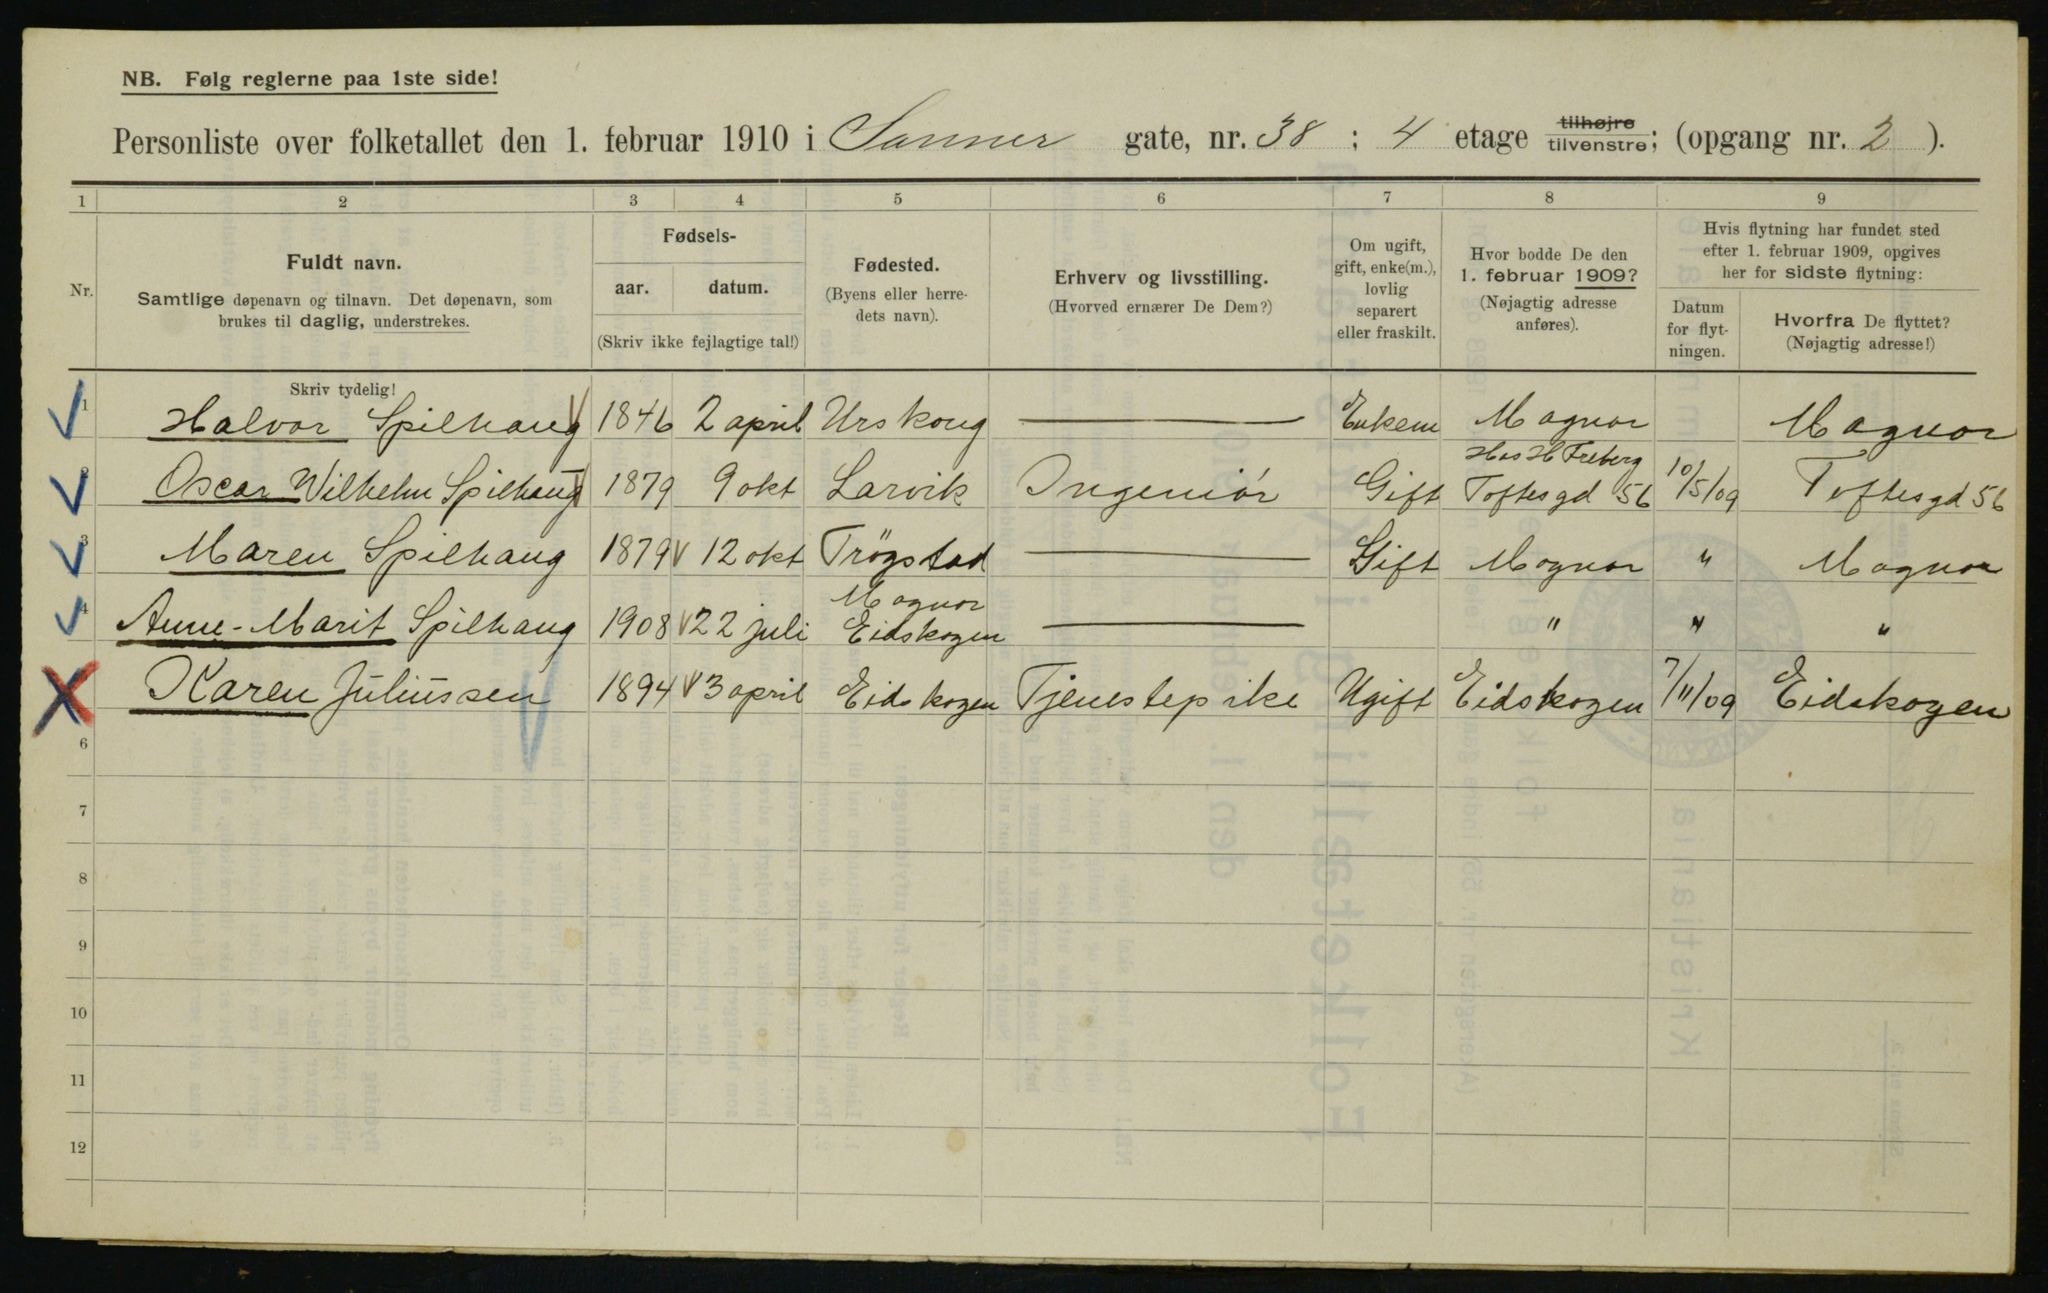 NB. Følg reglerne paa 1ste side!
Personliste over folketallet den 1. februar 1910 i Sanner gate, nr. 38 ; 4 etage tilhøjre tilvenstre; (opgang nr. 2 ).
1 2 3 4 5 6 7 8 9
Nr.
Fuldt navn.
Samtlige døpenavn og tilnavn. Det døpenavn, som
brukes til daglig, understrekes.
Fødsels-
aar. datum.
(Skriv ikke fejlagtige tal!)
Fødested.
(Byens eller herre-
dets navn).
Erhverv og livsstilling.
(Hvorved ernærer De Dem?)
Om ugift,
gift, enke(m.),
lovlig
separert
eller fraskilt.
Hvor bodde De den
1. februar 1909?
(Nøjagtig adresse
anføres).
Hvis flytning har fundet sted
efter 1. februar 1909, opgives
her for sidste flytning:
Datum
for flyt-
ningen.
Hvorfra De flyttet?
(Nøjagtig adresse!)
Skriv tydelig!
1 Halvor Spilhaug 1846 2 april Urskoug Enkem Magnor Magnor
Hos H Freberg
2 Oscar Wilhelm Spilhaug 1879 9 okt Larvik Ingeniör Gift Toftesgd 56 10/5/09 Toftesgd 56
3 Maren Spilhaug 1879 12 okt Trögstad Gift Magnor " Magnor
Magnor
4 Anne-Marit Spilhaug 1908 22 juli Eidskogen " " "
Karen Juliussen 1894 3 april Eidskogen Tjenestepike Ugift Eidskogen 7/11/09 Eidskogen
6
7
8
9
10
11
12